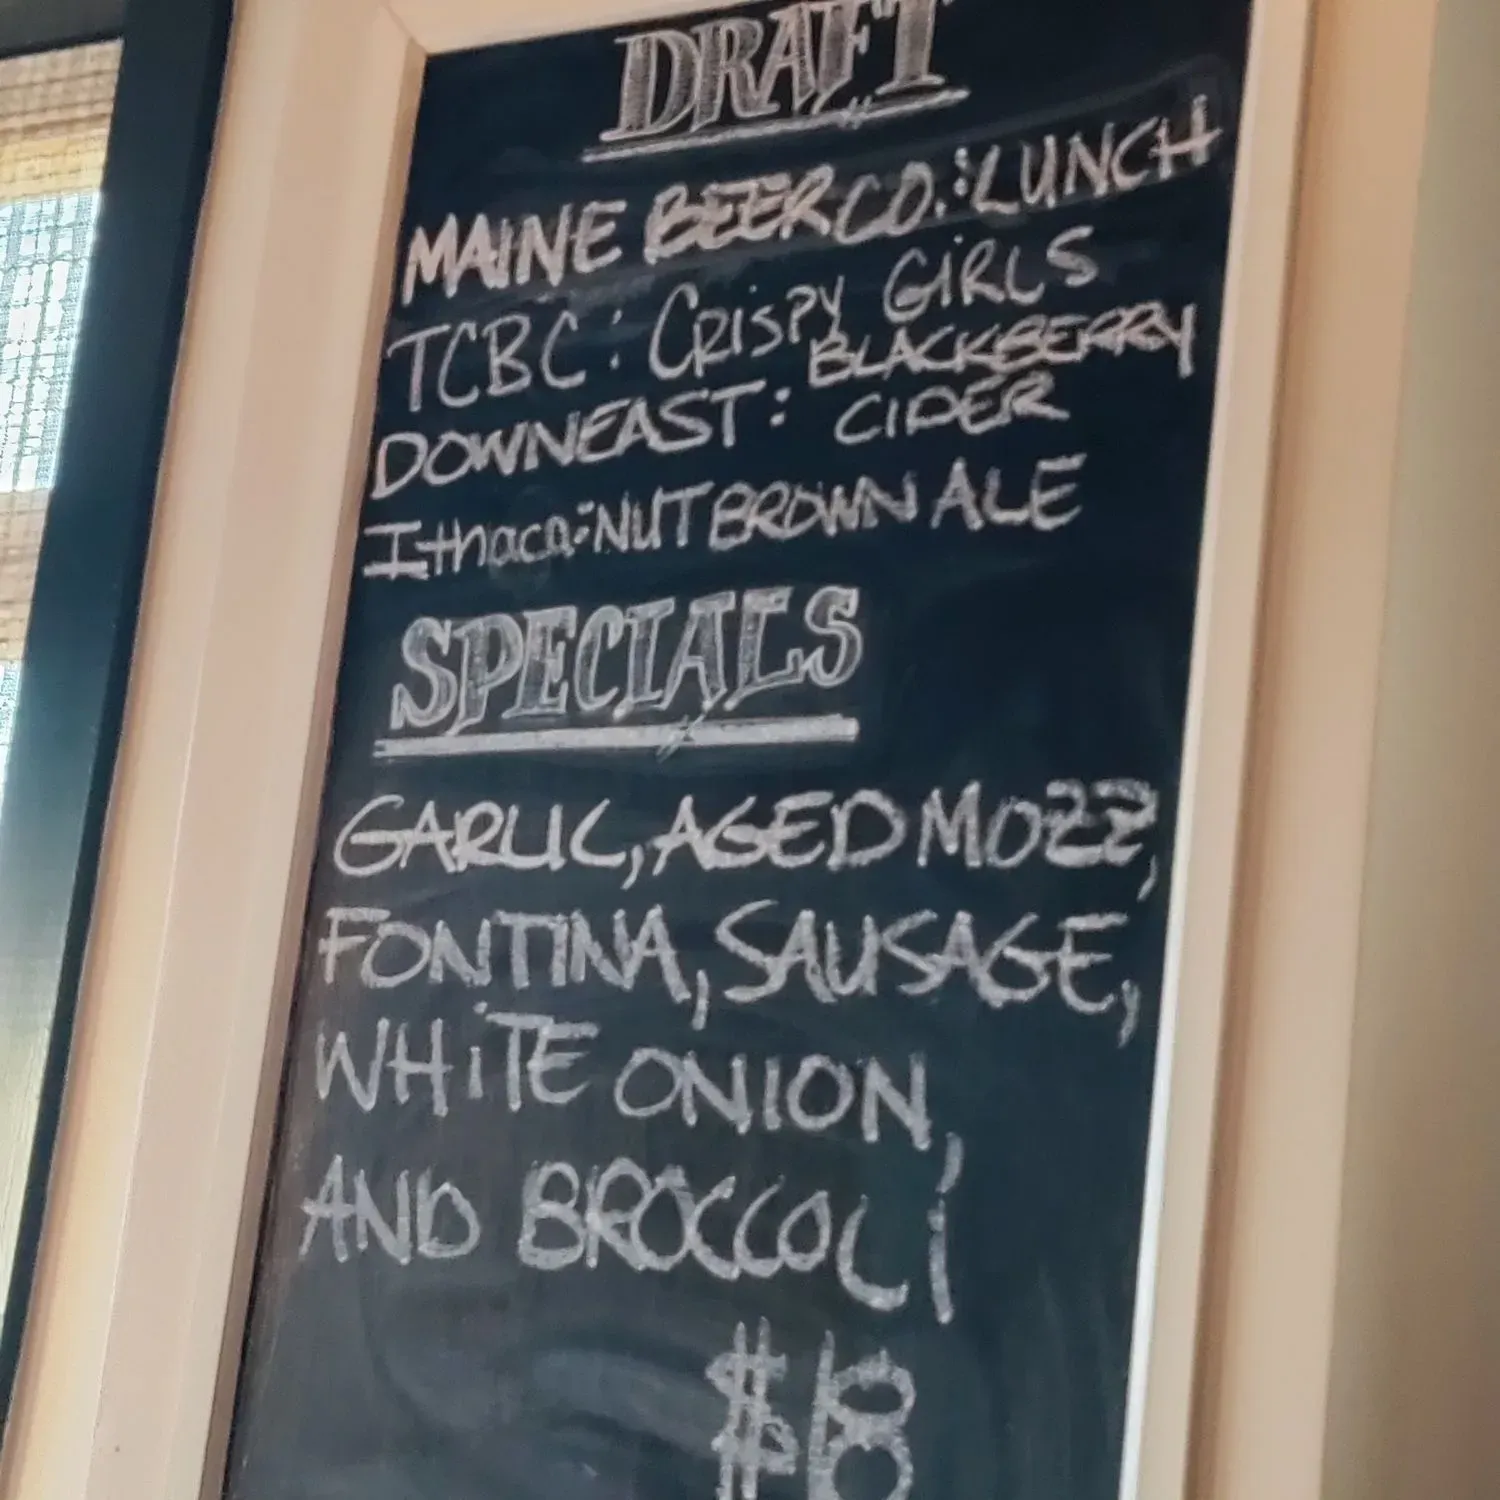 DRAFT
MAINE BEER CO.: LUNCH
TCBC: CRISPY GIRLS
DOWNEAST: BLACKBERRY
CIDER
Ithaca: NUT BROWN ALE
SPECIALS
GARLIC, AGED MOZZ,
FONTINA, SAUSAGE,
WHITE ONION,
AND BROCCOLI
$18